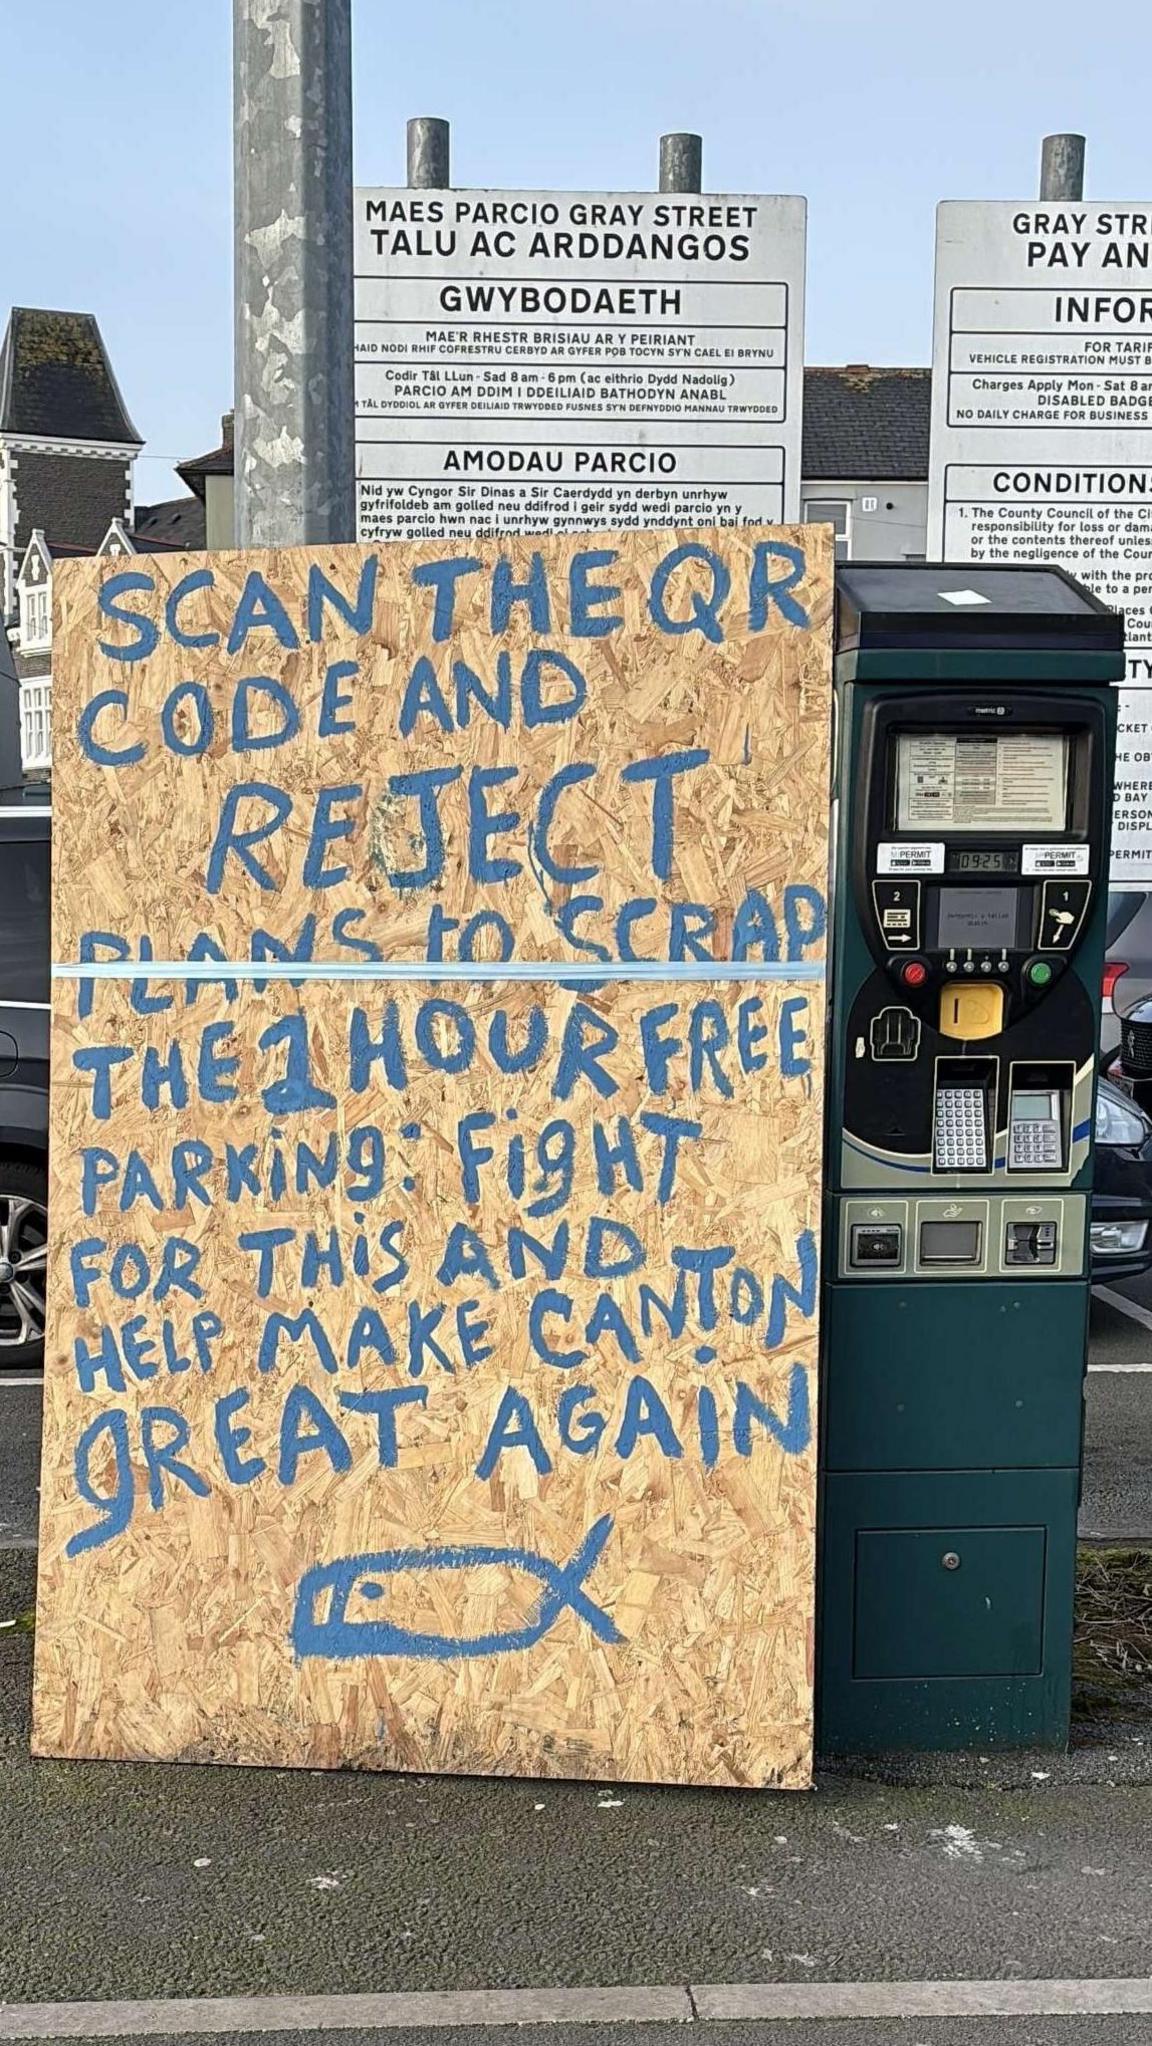 MAES PARCIO GRAY STREET
TALU AC ARDDANGOS
GWYBODAETH
MAE'R RHESTR BRISIAU AR Y PEIRIANT
HAID NODI RHIF COFRESTRU CERBYD AR GYFER POB TOCYN SY'N CAEL EI BRYNU
Codir Tâl LLun - Sad 8 am - 6 pm (ac eithrio Dydd Nadolig)
PARCIO AM DDIM I DDEILIAID BATHODYN ANABL
TÂL DYDDIOL AR GYFER DEILIAID TRWYDDED FUSNES SY'N DEFNYDDIO MANNAU TRWYDDED
AMODAU PARCIO
Nid yw Cyngor Sir Dinas a Sir Caerdydd yn derbyn unrhyw
gyfrifoldeb am golled neu ddifrod i geir sydd wedi parcio yn y
maes parcio hwn nac i unrhyw gynnwys sydd ynddynt oni bai fod y
cyfryw golled neu ddifrod wedi ei
GRAY STR
PAY AN
INFOR
FOR TARIF
VEHICLE REGISTRATION MUST B
Charges Apply Mon - Sat 8 am
DISABLED BADGE
NO DAILY CHARGE FOR BUSINESS
CONDITIONS
1. The County Council of the Ci
responsibility for loss or dama
or the contents thereof unles
by the negligence of the Coun
with the pro
ble to a per
Places
Cou
SCAN THE QR
CODE AND
REJECT
PLANS to SCRAP
THE 1 HOUR FREE
PARKiNg: FigHT
FOR THiS AND
HELP MAKE CANTON
gREAT AGAiN
metric
MiPERMIT
09:25
MiPERMIT
2
1